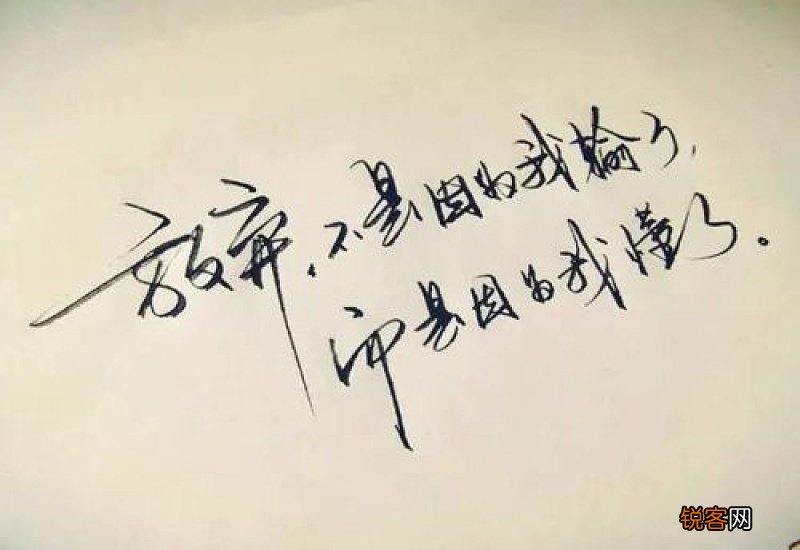 放弃，不是因为我输了，
而是因为我懂了。
锐客网